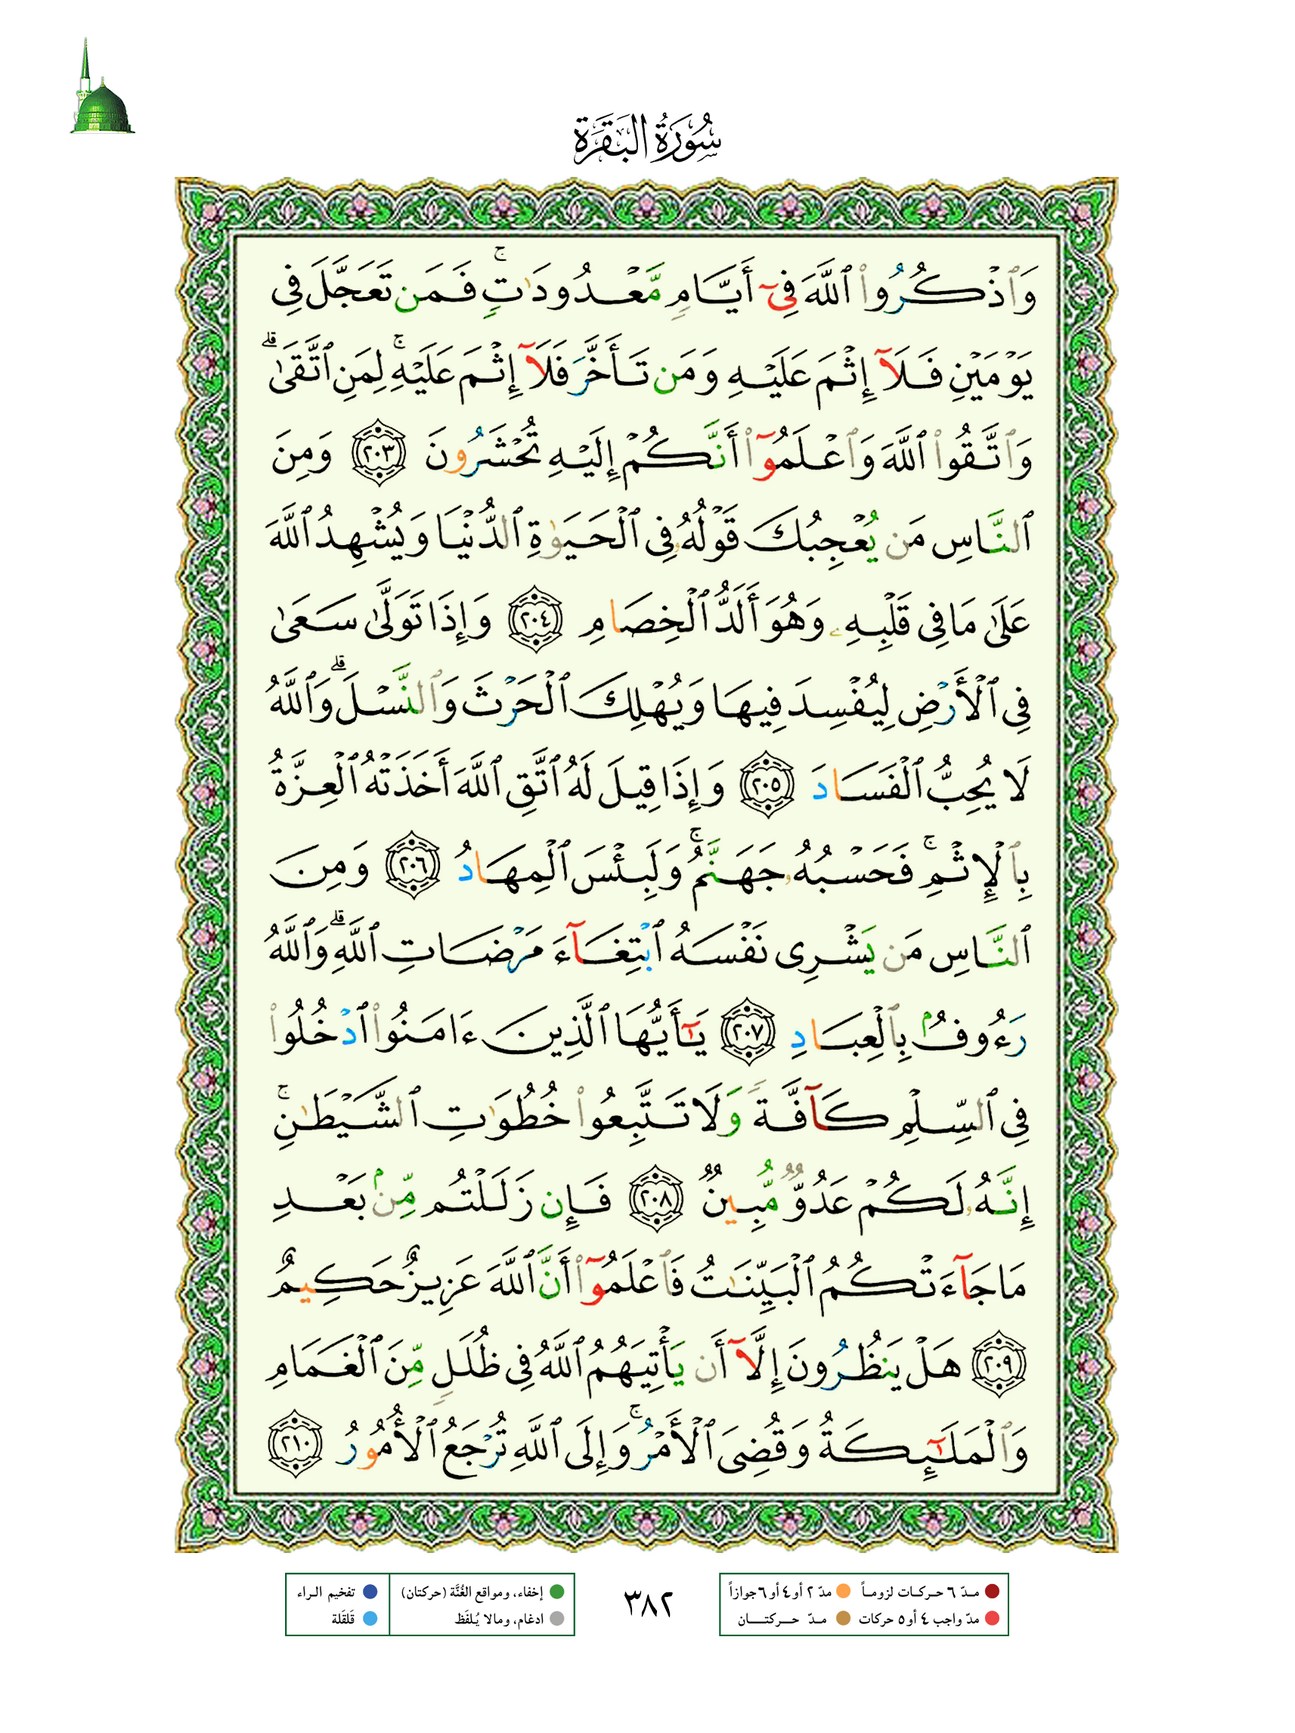 سُورَةُ البَقَرَة
وَٱذْكُرُوا۟ ٱللَّهَ فِىٓ أَيَّامٍ مَّعْدُودَٰتٍ ۚ فَمَن تَعَجَّلَ فِى
يَوْمَيْنِ فَلَآ إِثْمَ عَلَيْهِ وَمَن تَأَخَّرَ فَلَآ إِثْمَ عَلَيْهِ ۚ لِمَنِ ٱتَّقَىٰ ۗ
وَٱتَّقُوا۟ ٱللَّهَ وَٱعْلَمُوٓا۟ أَنَّكُمْ إِلَيْهِ تُحْشَرُونَ ٢٠٣ وَمِنَ
ٱلنَّاسِ مَن يُعْجِبُكَ قَوْلُهُۥ فِى ٱلْحَيَوٰةِ ٱلدُّنْيَا وَيُشْهِدُ ٱللَّهَ
عَلَىٰ مَا فِى قَلْبِهِۦ وَهُوَ أَلَدُّ ٱلْخِصَامِ ٢٠٤ وَإِذَا تَوَلَّىٰ سَعَىٰ
فِى ٱلْأَرْضِ لِيُفْسِدَ فِيهَا وَيُهْلِكَ ٱلْحَرْثَ وَٱلنَّسْلَ ۗ وَٱللَّهُ
لَا يُحِبُّ ٱلْفَسَادَ ٢٠٥ وَإِذَا قِيلَ لَهُ ٱتَّقِ ٱللَّهَ أَخَذَتْهُ ٱلْعِزَّةُ
بِٱلْإِثْمِ ۚ فَحَسْبُهُۥ جَهَنَّمُ ۚ وَلَبِئْسَ ٱلْمِهَادُ ٢٠٦ وَمِنَ
ٱلنَّاسِ مَن يَشْرِى نَفْسَهُ ٱبْتِغَآءَ مَرْضَاتِ ٱللَّهِ ۗ وَٱللَّهُ
رَءُوفٌۢ بِٱلْعِبَادِ ٢٠٧ يَٰٓأَيُّهَا ٱلَّذِينَ ءَامَنُوا۟ ٱدْخُلُوا۟
فِى ٱلسِّلْمِ كَآفَّةً وَلَا تَتَّبِعُوا۟ خُطُوَٰتِ ٱلشَّيْطَٰنِ ۚ
إِنَّهُۥ لَكُمْ عَدُوٌّ مُّبِينٌ ٢٠٨ فَإِن زَلَلْتُم مِّنۢ بَعْدِ
مَا جَآءَتْكُمُ ٱلْبَيِّنَٰتُ فَٱعْلَمُوٓا۟ أَنَّ ٱللَّهَ عَزِيزٌ حَكِيمٌ
٢٠٩ هَلْ يَنظُرُونَ إِلَّآ أَن يَأْتِيَهُمُ ٱللَّهُ فِى ظُلَلٍ مِّنَ ٱلْغَمَامِ
وَٱلْمَلَٰٓئِكَةُ وَقُضِىَ ٱلْأَمْرُ ۚ وَإِلَى ٱللَّهِ تُرْجَعُ ٱلْأُمُورُ ٢١٠
مدّ ٦ حركات لزوماً مدّ ٢ أو ٤ أو ٦ جوازاً
مدّ واجب ٤ أو ٥ حركات مدّ حركتان
٣٨٢
إخفاء، ومواقع الغُنَّة (حركتان) تفخيم الراء
ادغام، ومالا يُلفَظ قَلقَلة